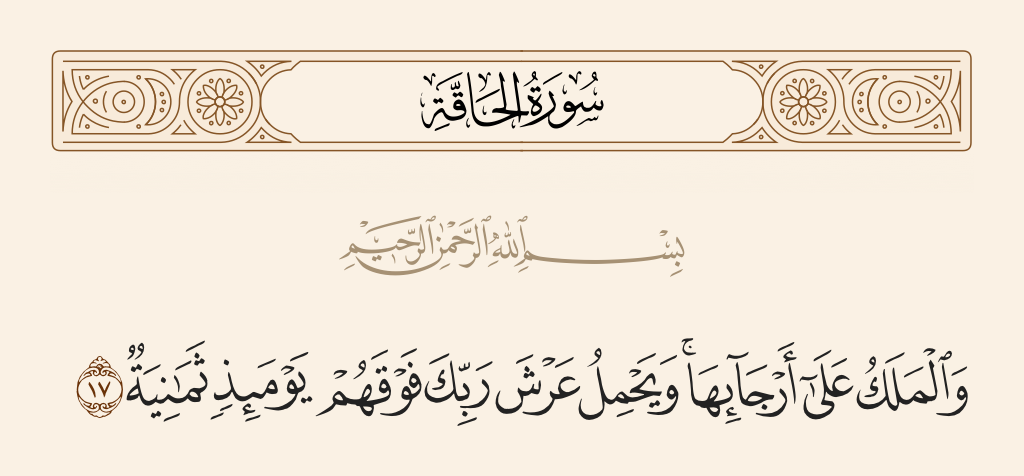 سُورَةُ الحَاقَّةِ
بِسْمِ ٱللَّهِ ٱلرَّحْمَٰنِ ٱلرَّحِيمِ
وَٱلْمَلَكُ عَلَىٰٓ أَرْجَآئِهَا ۚ وَيَحْمِلُ عَرْشَ رَبِّكَ فَوْقَهُمْ يَوْمَئِذٍ ثَمَٰنِيَةٌ ١٧